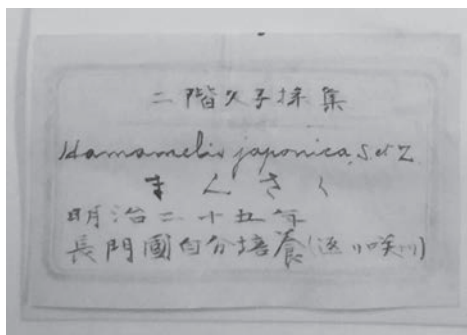 二階久子採集
Hamamelis japonica, S. et Z.
まんさく
明治二十五年
長門國自分培養(返り咲